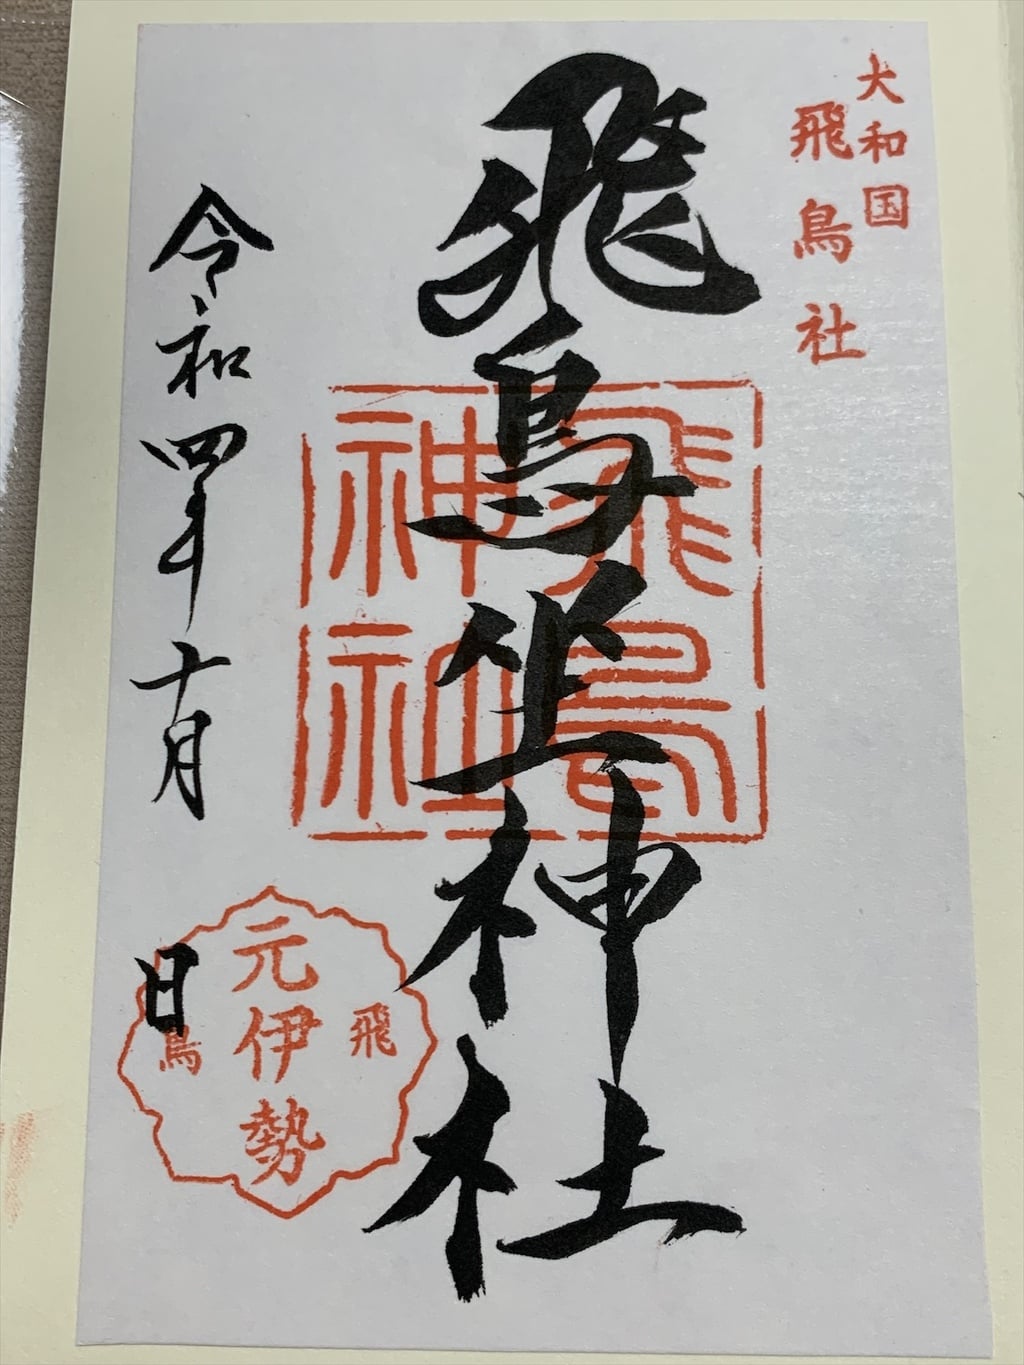 大和国
飛鳥社
飛鳥坐神社
飛鳥
神社
令和四年十月 日
飛鳥
元伊勢